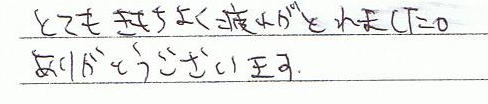 とてもきもちよく疲れがとれました。
ありがとうございます.